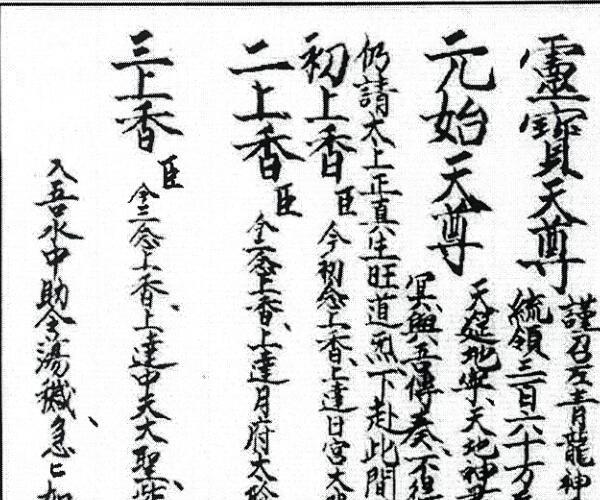 靈寶天尊
謹召左青龍神
統領三百六十万
元始天尊
天廷地牢天地神
冥與吾傳奏不得
仍請太上正真生旺道炁下赴此間
初上香 臣今初念上香上達日宮太
二上香 臣今二念上香上達月府太陰
三上香 臣今三念上香上達中天大聖紫
入吾水中助令蕩穢急〻如